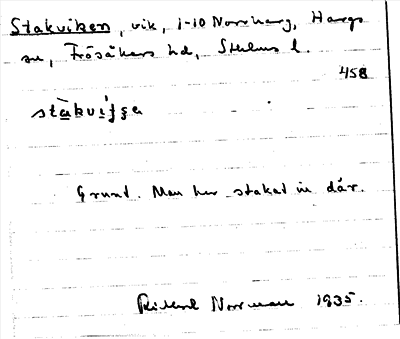 Stakviken, vik, 1-10 Norrharg, Hargs
sn, Frösåkers hd, Sthlms l.
458
Grund. Man har stakat in där.
Rikard Norrman 1935.